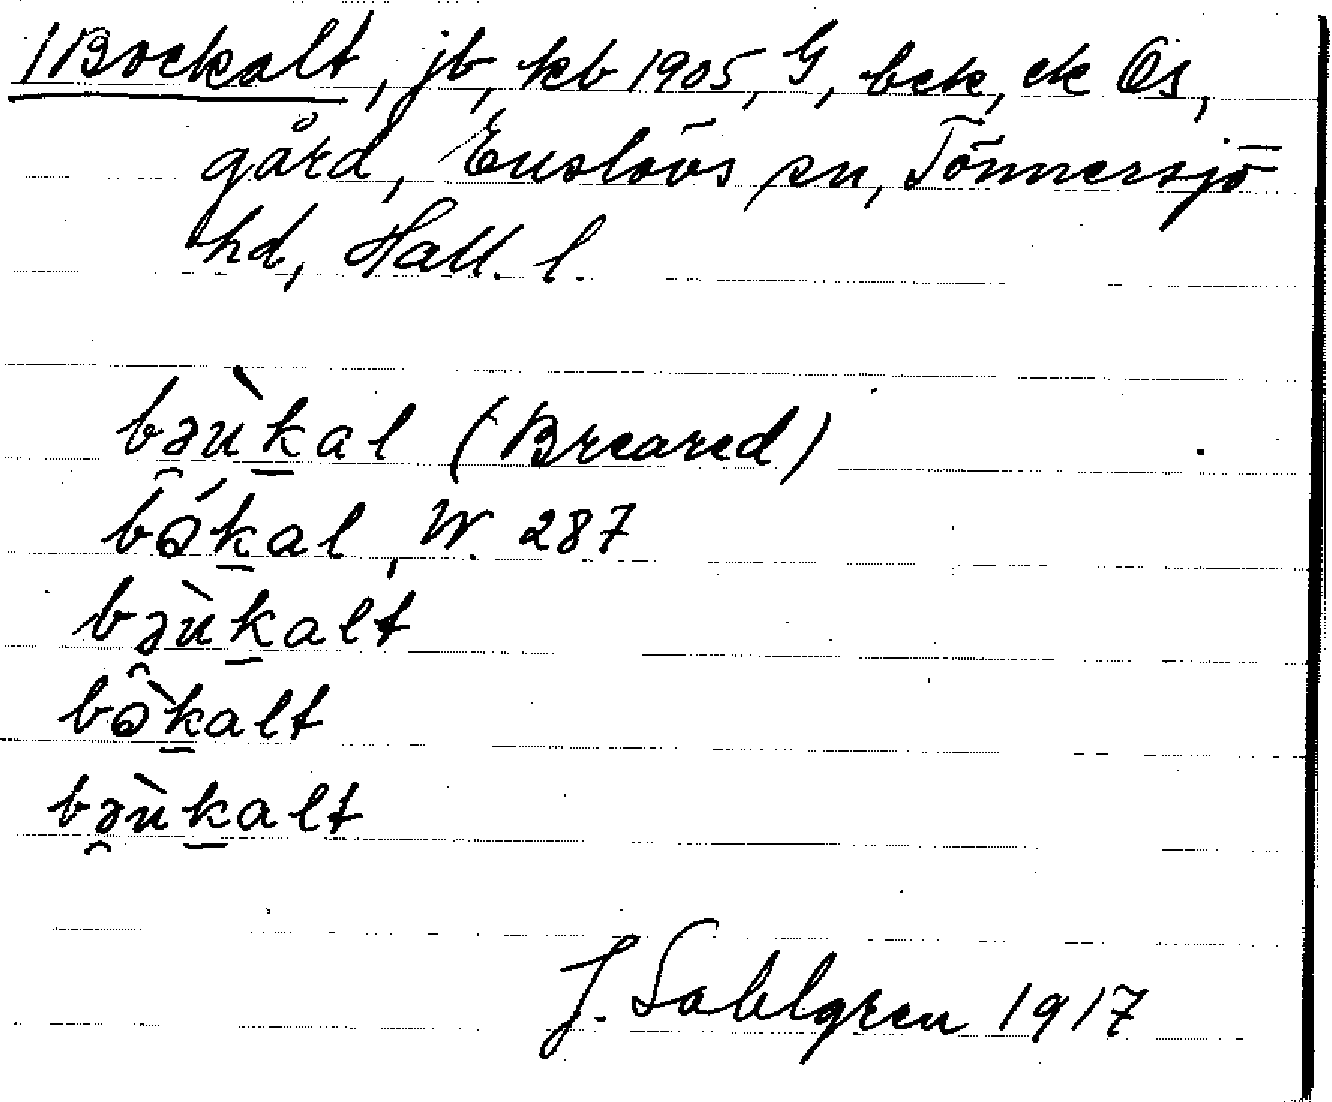 1 Bockalt, jb, kb 1905, G, bck, ek Ös,
gård, Enslövs sn, Tönnersjö
hd, Hall. l.
bəùkal (Breared)
bə́kal, W. 287
bəùkalt
bə̀kalt
bəùkalt
J. Sahlgren 1917